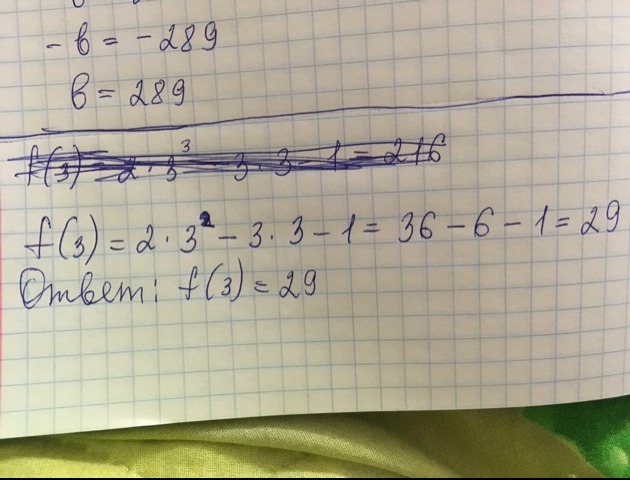 - в = - 289
в = 289
f(3) = 2 · 3³ - 3 · 3 - 1 = 216
f(3) = 2 · 3² - 3 · 3 - 1 = 36 - 6 - 1 = 29
Ответ: f(3) = 29